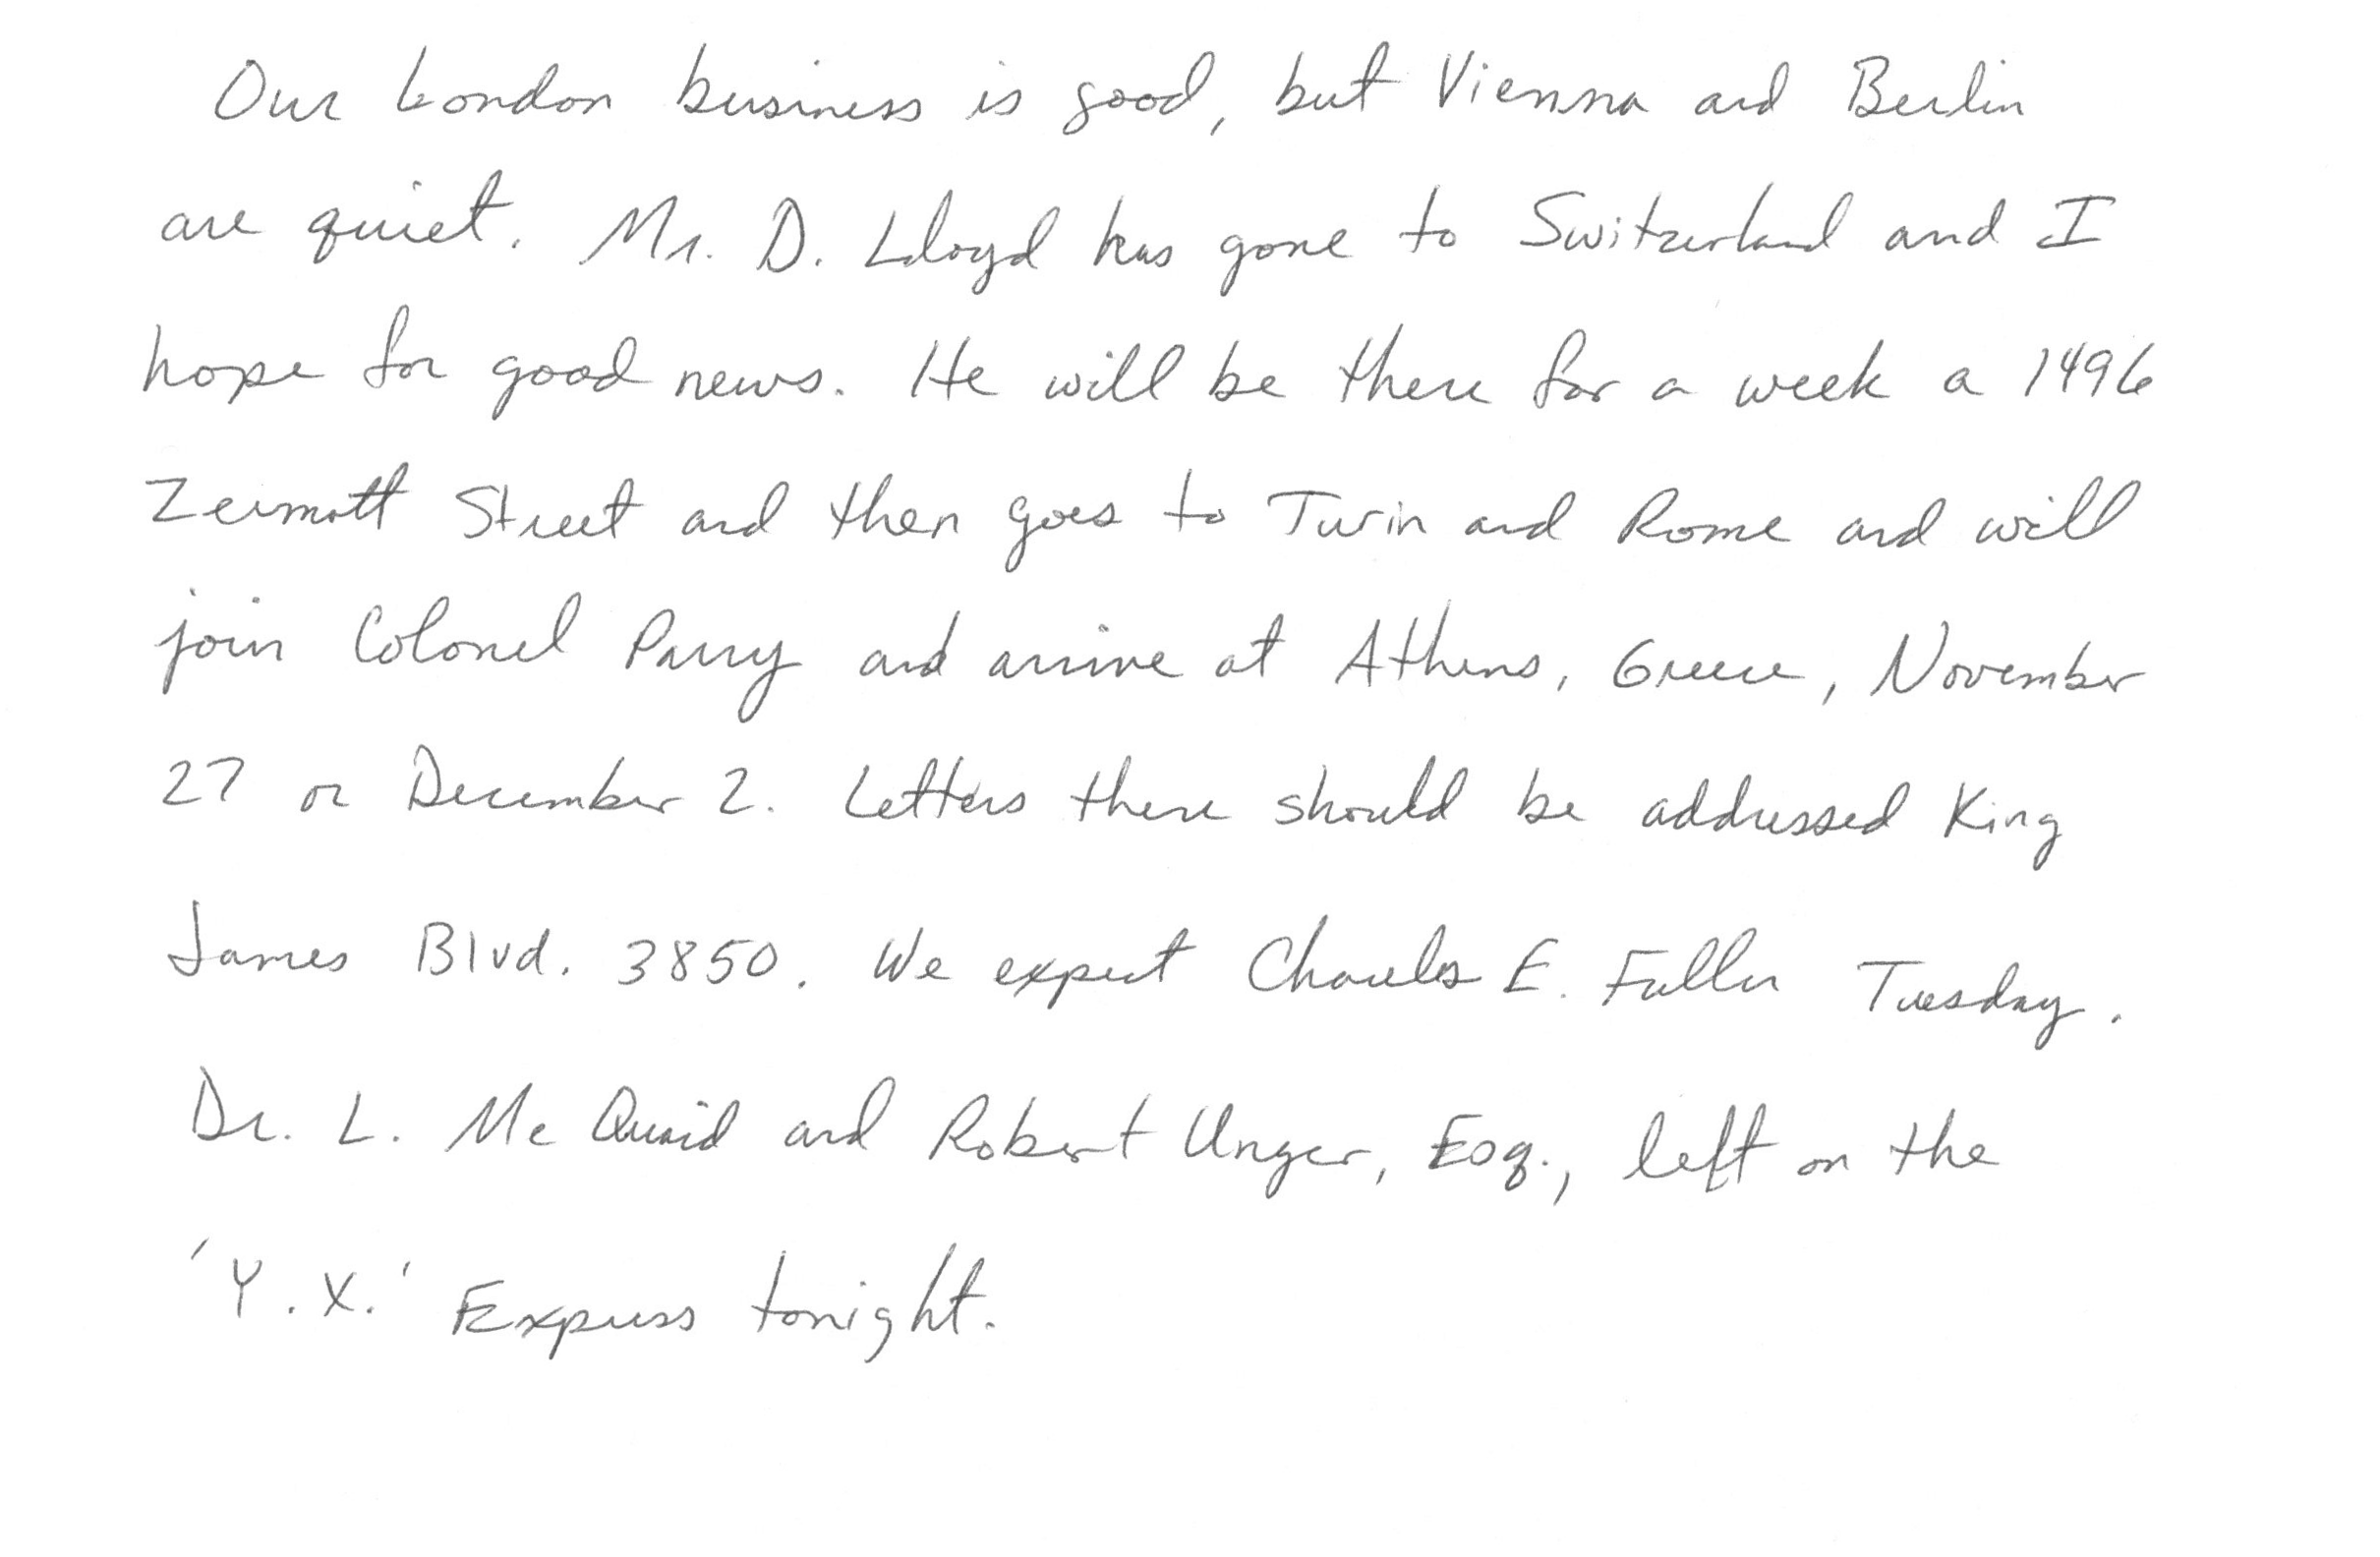 Our London business is good, but Vienna and Berlin
are quiet. Mr. D. Lloyd has gone to Switzerland and I
hope for good news. He will be there for a week a 1496
Zermott Street and then goes to Turin and Rome and will
join Colonel Parry and arrive at Athens, Greece, November
27 or December 2. Letters there should be addressed King
James Blvd. 3850. We expect Charles E. Fuller Tuesday.
Dr. L. Mc Quaid and Robert Unger, Esq., left on the
'Y.X.' Express tonight.